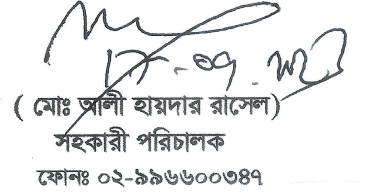 ( মোঃ আলী হায়দার রাসেল)
সহকারী পরিচালক
ফোনঃ ০২-৯৯৬৬০০৩৪৭